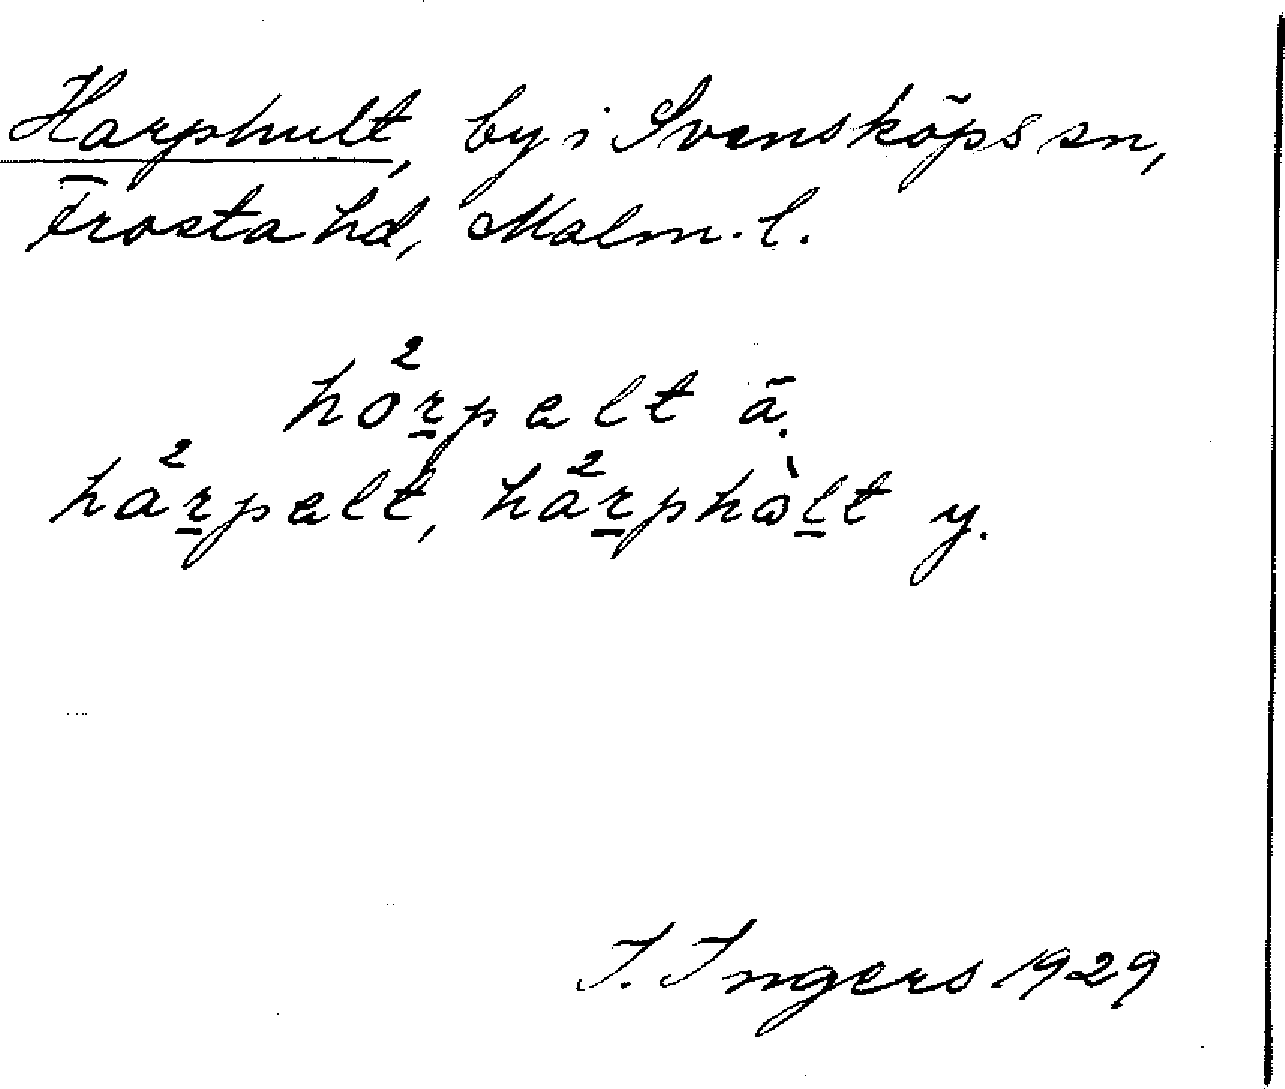 Harphult, by i Svensköps sn,
Frosta hd, Malm. l.
ho²rpalt ä.
ha²rpalt, ha²rphòlt y.
I. Ingers 1929